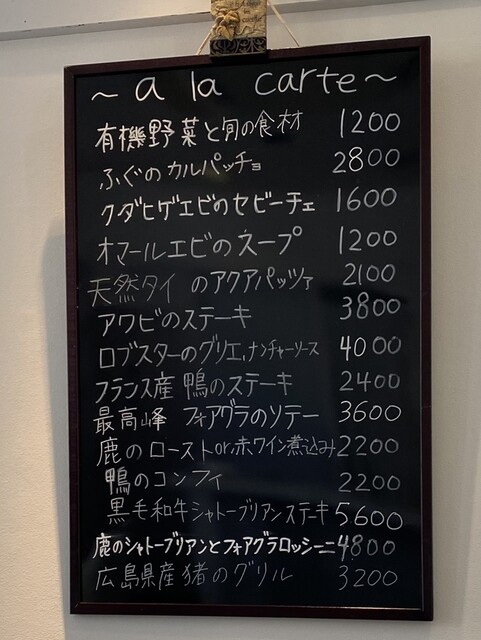 ~ a la carte ~
有機野菜と旬の食材 1200
ふぐのカルパッチョ 2800
クダヒゲエビのセビーチェ 1600
オマールエビのスープ 1200
天然タイ のアクアパッツァ 2100
アワビのステーキ 3800
ロブスターのグリエ,ナンチャーソース 4000
フランス産 鴨のステーキ 2400
最高峰 フォアグラのソテー 3600
鹿のローストor,赤ワイン煮込み 2200
鴨のコンフィ 2200
黒毛和牛シャトーブリアンステーキ 5600
鹿のシャトーブリアンとフォアグラロッシーニ 4800
広島県産猪のグリル 3200